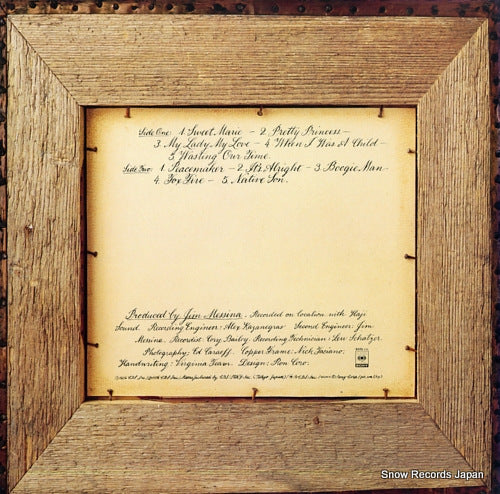 Side One: 1. Sweet Marie - 2. Pretty Princess -
3. My Lady, My Love - 4. When I Was A Child -
5. Wasting Our Time.
Side Two: 1. Peacemaker - 2. It's Alright - 3. Boogie Man -
4. Fox Fire - 5. Native Son.
Produced by Jim Messina. Recorded on location with Haji
Sound. Recording Engineer: Alex Kazanegras Second Engineer: Jim
Messina. Recordist: Cory Bailey. Recording Technician: Lew Schatzer.
Photography: Ed Caraeff. Copper Frame: Nick Fasciano.
Handwriting: Virginia Team. Design: Ron Coro.
CBS
SONY
Snow Records Japan